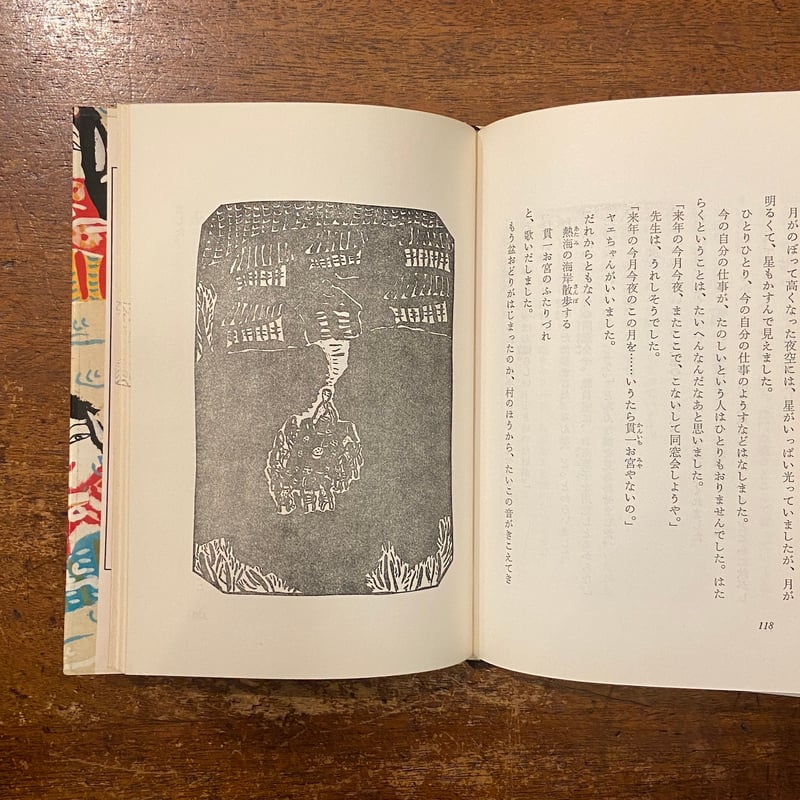 月がのぼって高くなった夜空には、星がいっぱい光っていましたが、月が
明るくて、星もかすんで見えました。
ひとりひとり、今の自分の仕事のようすなどはなしました。
今の自分の仕事が、たのしいという人はひとりもおりませんでした。はた
らくということは、たいへんなんだなあと思いました。
「来年の今月今夜、またここで、こないして同窓会しようや。」
先生は、うれしそうでした。
「来年の今月今夜のこの月を……いうたら貫一お宮やないの。」
ヤエちゃんがいいました。
だれからともなく
熱海の海岸散歩する
貫一お宮のふたりづれ
と、歌いだしました。
もう盆おどりがはじまったのか、村のほうから、たいこの音がきこえてき
118